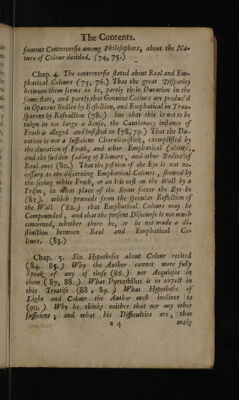 The Contents.
famous Controversie among Philosophers, about the Na-
ture of Colour decided. (74, 75.)
Chap. 4. The controversie stated about Real and Em-
phatical Colours (75, 76.) That the great Disparity
between them seems to be, partly their Duration in the
same state, and partly, that Genuine Colours are produc'd
in Opacous Bodies by Reflection, and Emphatical in Trans-
parent by Refraction (78.) but that this is not to be
taken in too large a Sense, the Cautionary instance of
Froth is alleged and insisted on (78, 79.) That the Du-
ration is not a sufficient Characteristick, exemplified by
the duration of Froth, and other Emphatical Colours,
and the suddain fading of Flowers, and other Bodies of
Real ones (80.) That the position of the Eye is not ne-
cessary to the discerning Emphatical Colours, shewed by
the seeing white Froth, or an Iris cast on the Wall by a
Prism, in what place of the Room soever the Eye be
(81.) which proceeds from the specular Reflection of
the Wall (82.) that Emphatical Colours may be
Compounded, and that the present Discourse is not much
concerned, whether there be, or be not made a di-
stinction between Real and Emphatical Co-
lours. (83.)
Chap. 5. Six Hypotheses about Colour recited
(84, 85.) Why the Author cannot more fully
Speak of any of those (86.) nor Acquiesce in
them (87, 88.) What Pyrophilus is to expect in
this Treatise (88, 89.) What Hypothesis of
Light and Colour the Author most inclines to
(90.) Why he thinks neither that nor any other
sufficient; and what his Difficulties are, that
a 4
make